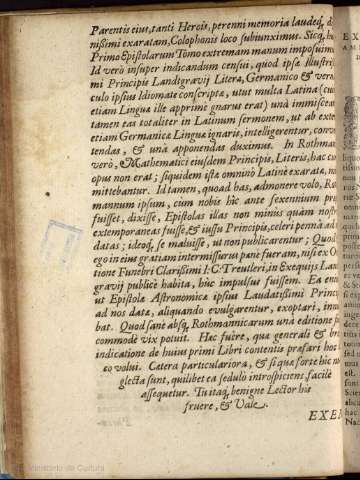 Parentis eius, tanti Herois, perenni memoria laudeq́; d
nissimi exaratam, Colophonis loco subiunximus. Sicq́; h
Primo Epistolarum Tomo extremam manum imposuim
Id verò insuper indicandum censui, quod ipsæ Illustriss
mi Principis Landtgravij Literæ, Germanico & verna
culo ipsius Idiomate conscriptæ, utut multa Latina (cum
etiam Linguæ ille apprimè gnarus erat) unà immiscea
tamen eas totaliter in Latinum sermonem, ut ab exter
etiam Germanicæ Linguæ ignaris, intelligerentur, conve
tendas, & unà apponendas duximus. In Rothman
verò, Mathematici eiusdem Principis, Literis, hac cu
opus non erat; siquidem istæ omninò Latinè exaratæ, na
mittebantur. Id tamen, quoad has, admonere volo, Ro
mannum ipsum, cum nobis hic ante sexennium præ
fuisset, dixisse, Epistolas illas non minùs quàm nostr
extemporaneas fuisse, & iussu Principis, celeri pennâ ad
datas; ideoq́; se maluisse, ut non publicarentur; Quod
ego in eius gratiam intermissurus pænè fueram, nisi ex O
tione Funebri Clarissimi I: C: Treutleri, in Exequijs Lan
gravij publicè habita, huc impulsus fuissem. Ea eni
ut Epistolæ Astronomicæ ipsius Laudatissimi Princi
ad nos datæ, aliquando evulgarentur, exoptari, inn
bat. Quod sanè absq́; Rothmannicarum unà editione f
commodè vix potuit. Hæc fuêre, quæ generali & br
indicatione de huius primi Libri contentis præfari hoc l
co volui. Cætera particulariora, & si quæ fortè hic n
glecta sunt, quilibet ea sedulò introspiciens facilè
assequetur. Tu itaq́; benigne Lector his
fruere, & Vale.
EXEM
Ministerio de Cultura